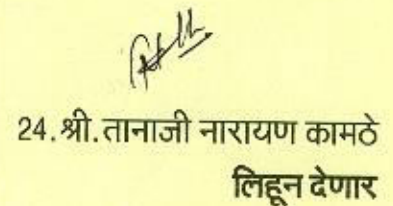 24.श्री.तानाजी नारायण कामठे
लिहून देणार